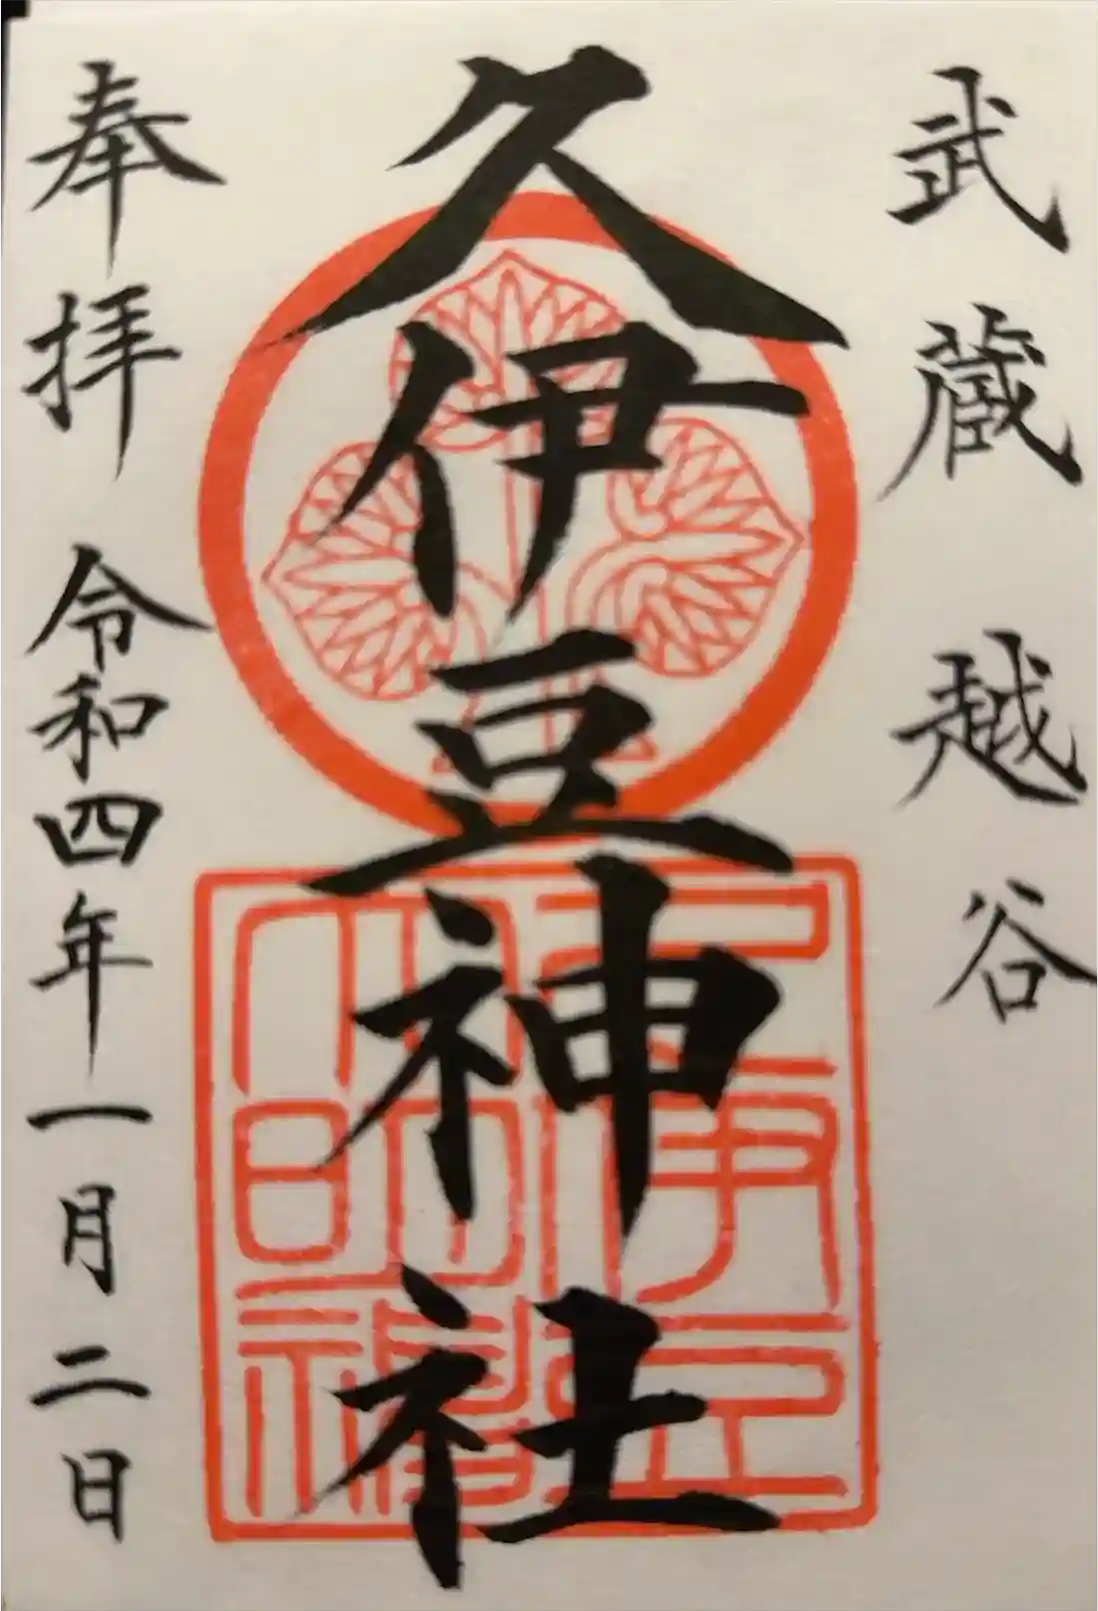 武蔵 越谷
久伊豆神社
奉拝 令和四年一月二日